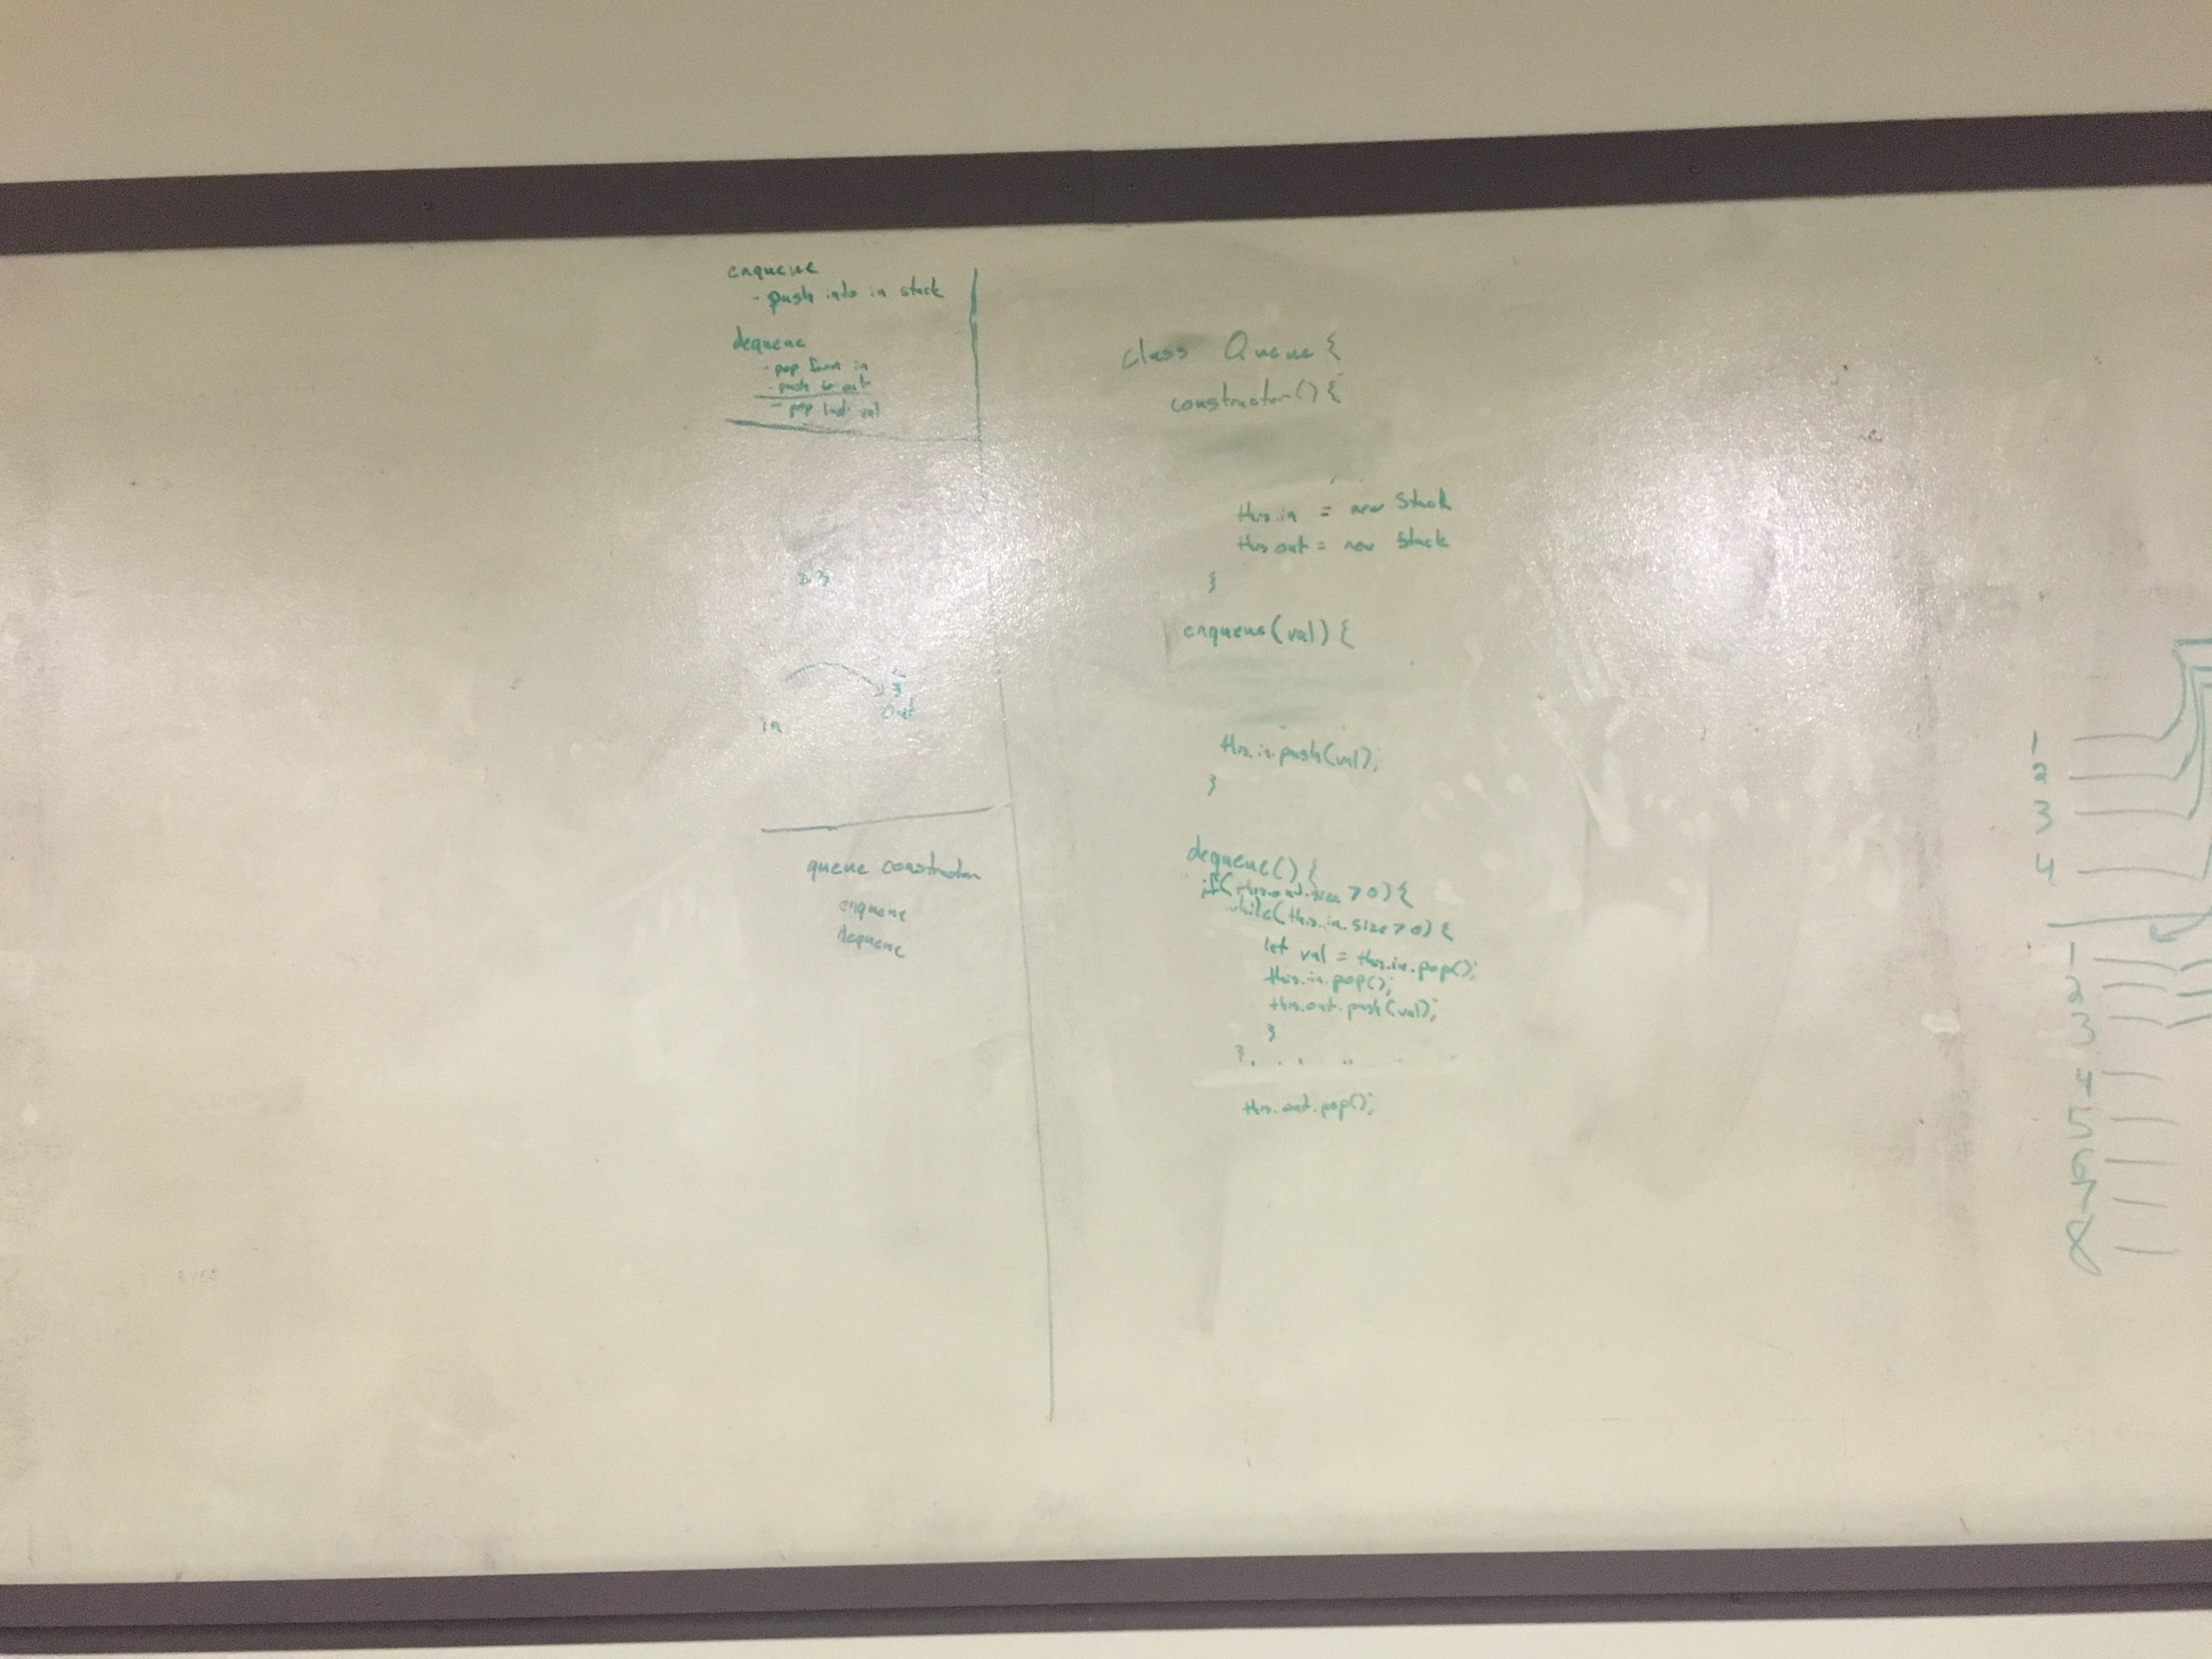 enqueue
- push into in stack
dequeue
- pop from in
- push to out
- pop last val
in
3
Out
queue constructor
enqueue
dequeue
class Queue {
constructor() {
this.in = new Stack
this.out = new Stack
}
enqueue(val) {
this.in.push(val);
}
dequeue() {
if(this.out.size > 0) {
while(this.in.size > 0) {
let val = this.in.pop();
this.in.pop();
this.out.push(val);
}
}
this.out.pop();
1
2
3
4
1
2
3
4
5
6
7
8